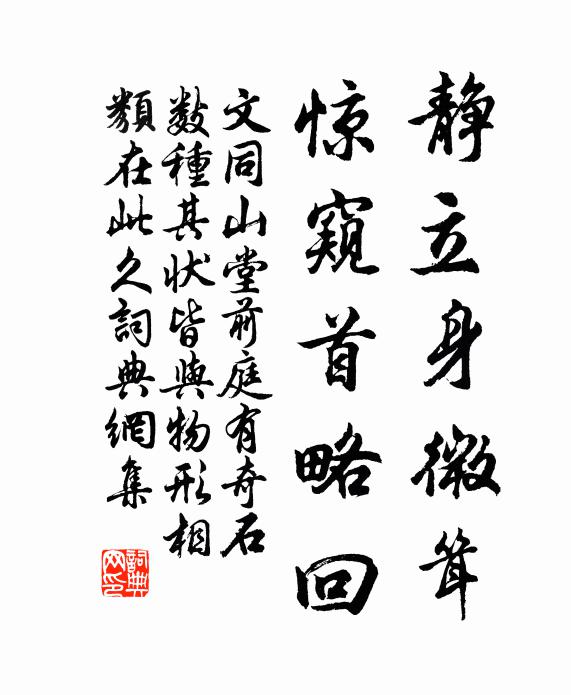 静立身微耸
惊窺首略回
文同山堂前庭有奇石
数種其状皆與物形相
類在此久詞典網集
詞典
网印